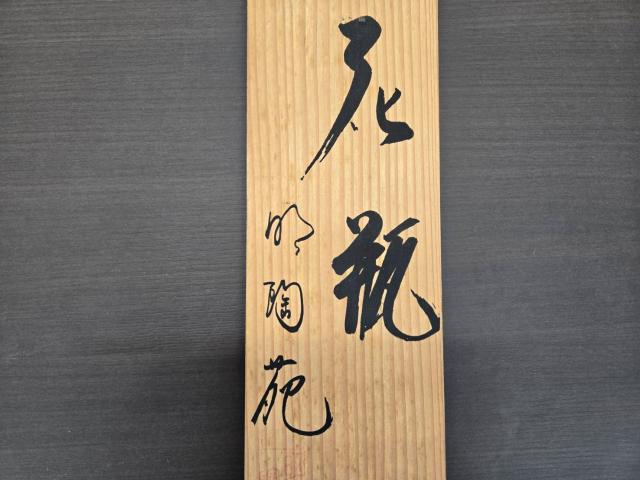 花瓶
明陶苑